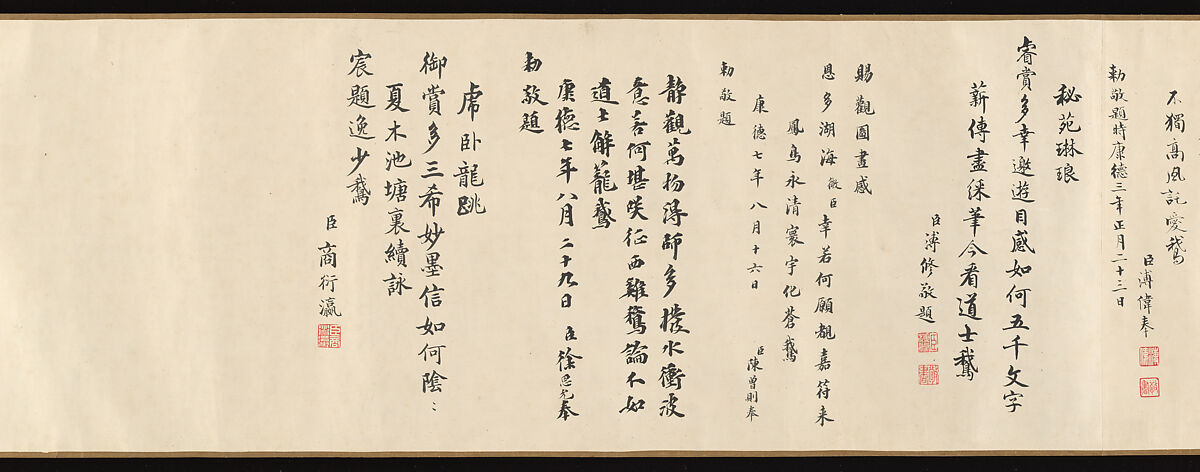 不獨高風託愛鵞
臣溥偉奉
勅敬題時康德三年正月二十三日
秘苑琳琅
睿賞多幸邀遊目感如何五千文字
薪傳盡綵筆今看道士鵞
臣溥修敬題
賜觀圖畫感
恩多湖海微臣幸若何願覩嘉符来
鳳鳥永清寰宇化蒼鵞
康德七年八月十六日
臣陳曾則奉
勅敬題
静觀萬物得師多撥水衝波
意若何堪咲征西雞鶩論不如
道士解籠鵞
康德七年八月二十九日 臣徐思允奉
勅敬題
虎卧龍跳
御賞多三希妙墨信如何陰〻
夏木池塘裏續詠
宸題逸少鵞
臣商衍瀛